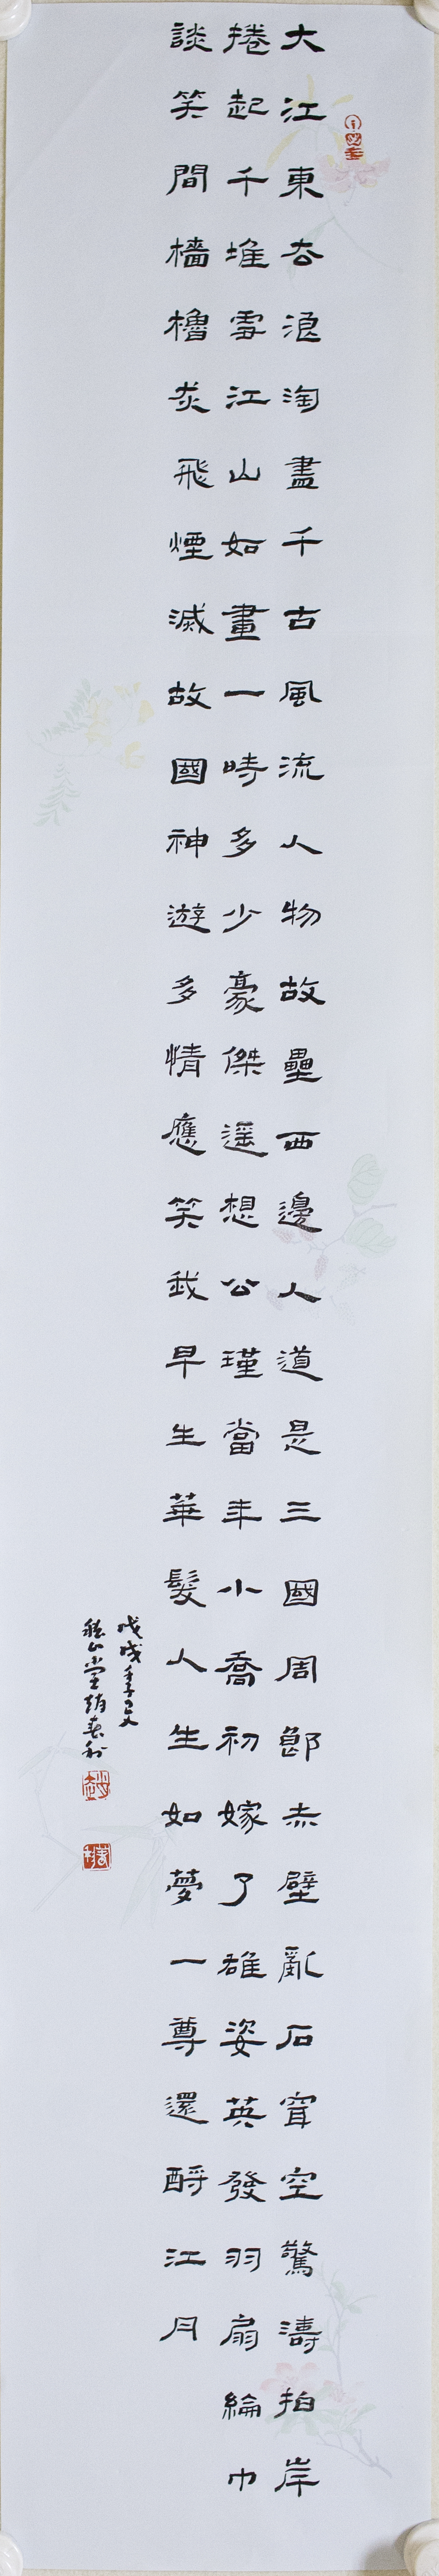 大江東去浪淘盡千古風流人物故壘西邊人道是三國周郎赤壁亂石穿空驚濤拍岸
捲起千堆雪江山如畫一時多少豪傑遥想公瑾當年小喬初嫁了雄姿英發羽扇綸巾
談笑間檣櫓灰飛煙滅故國神遊多情應笑我早生華髮人生如夢一尊還酹江月
戊戌
山堂趙春利